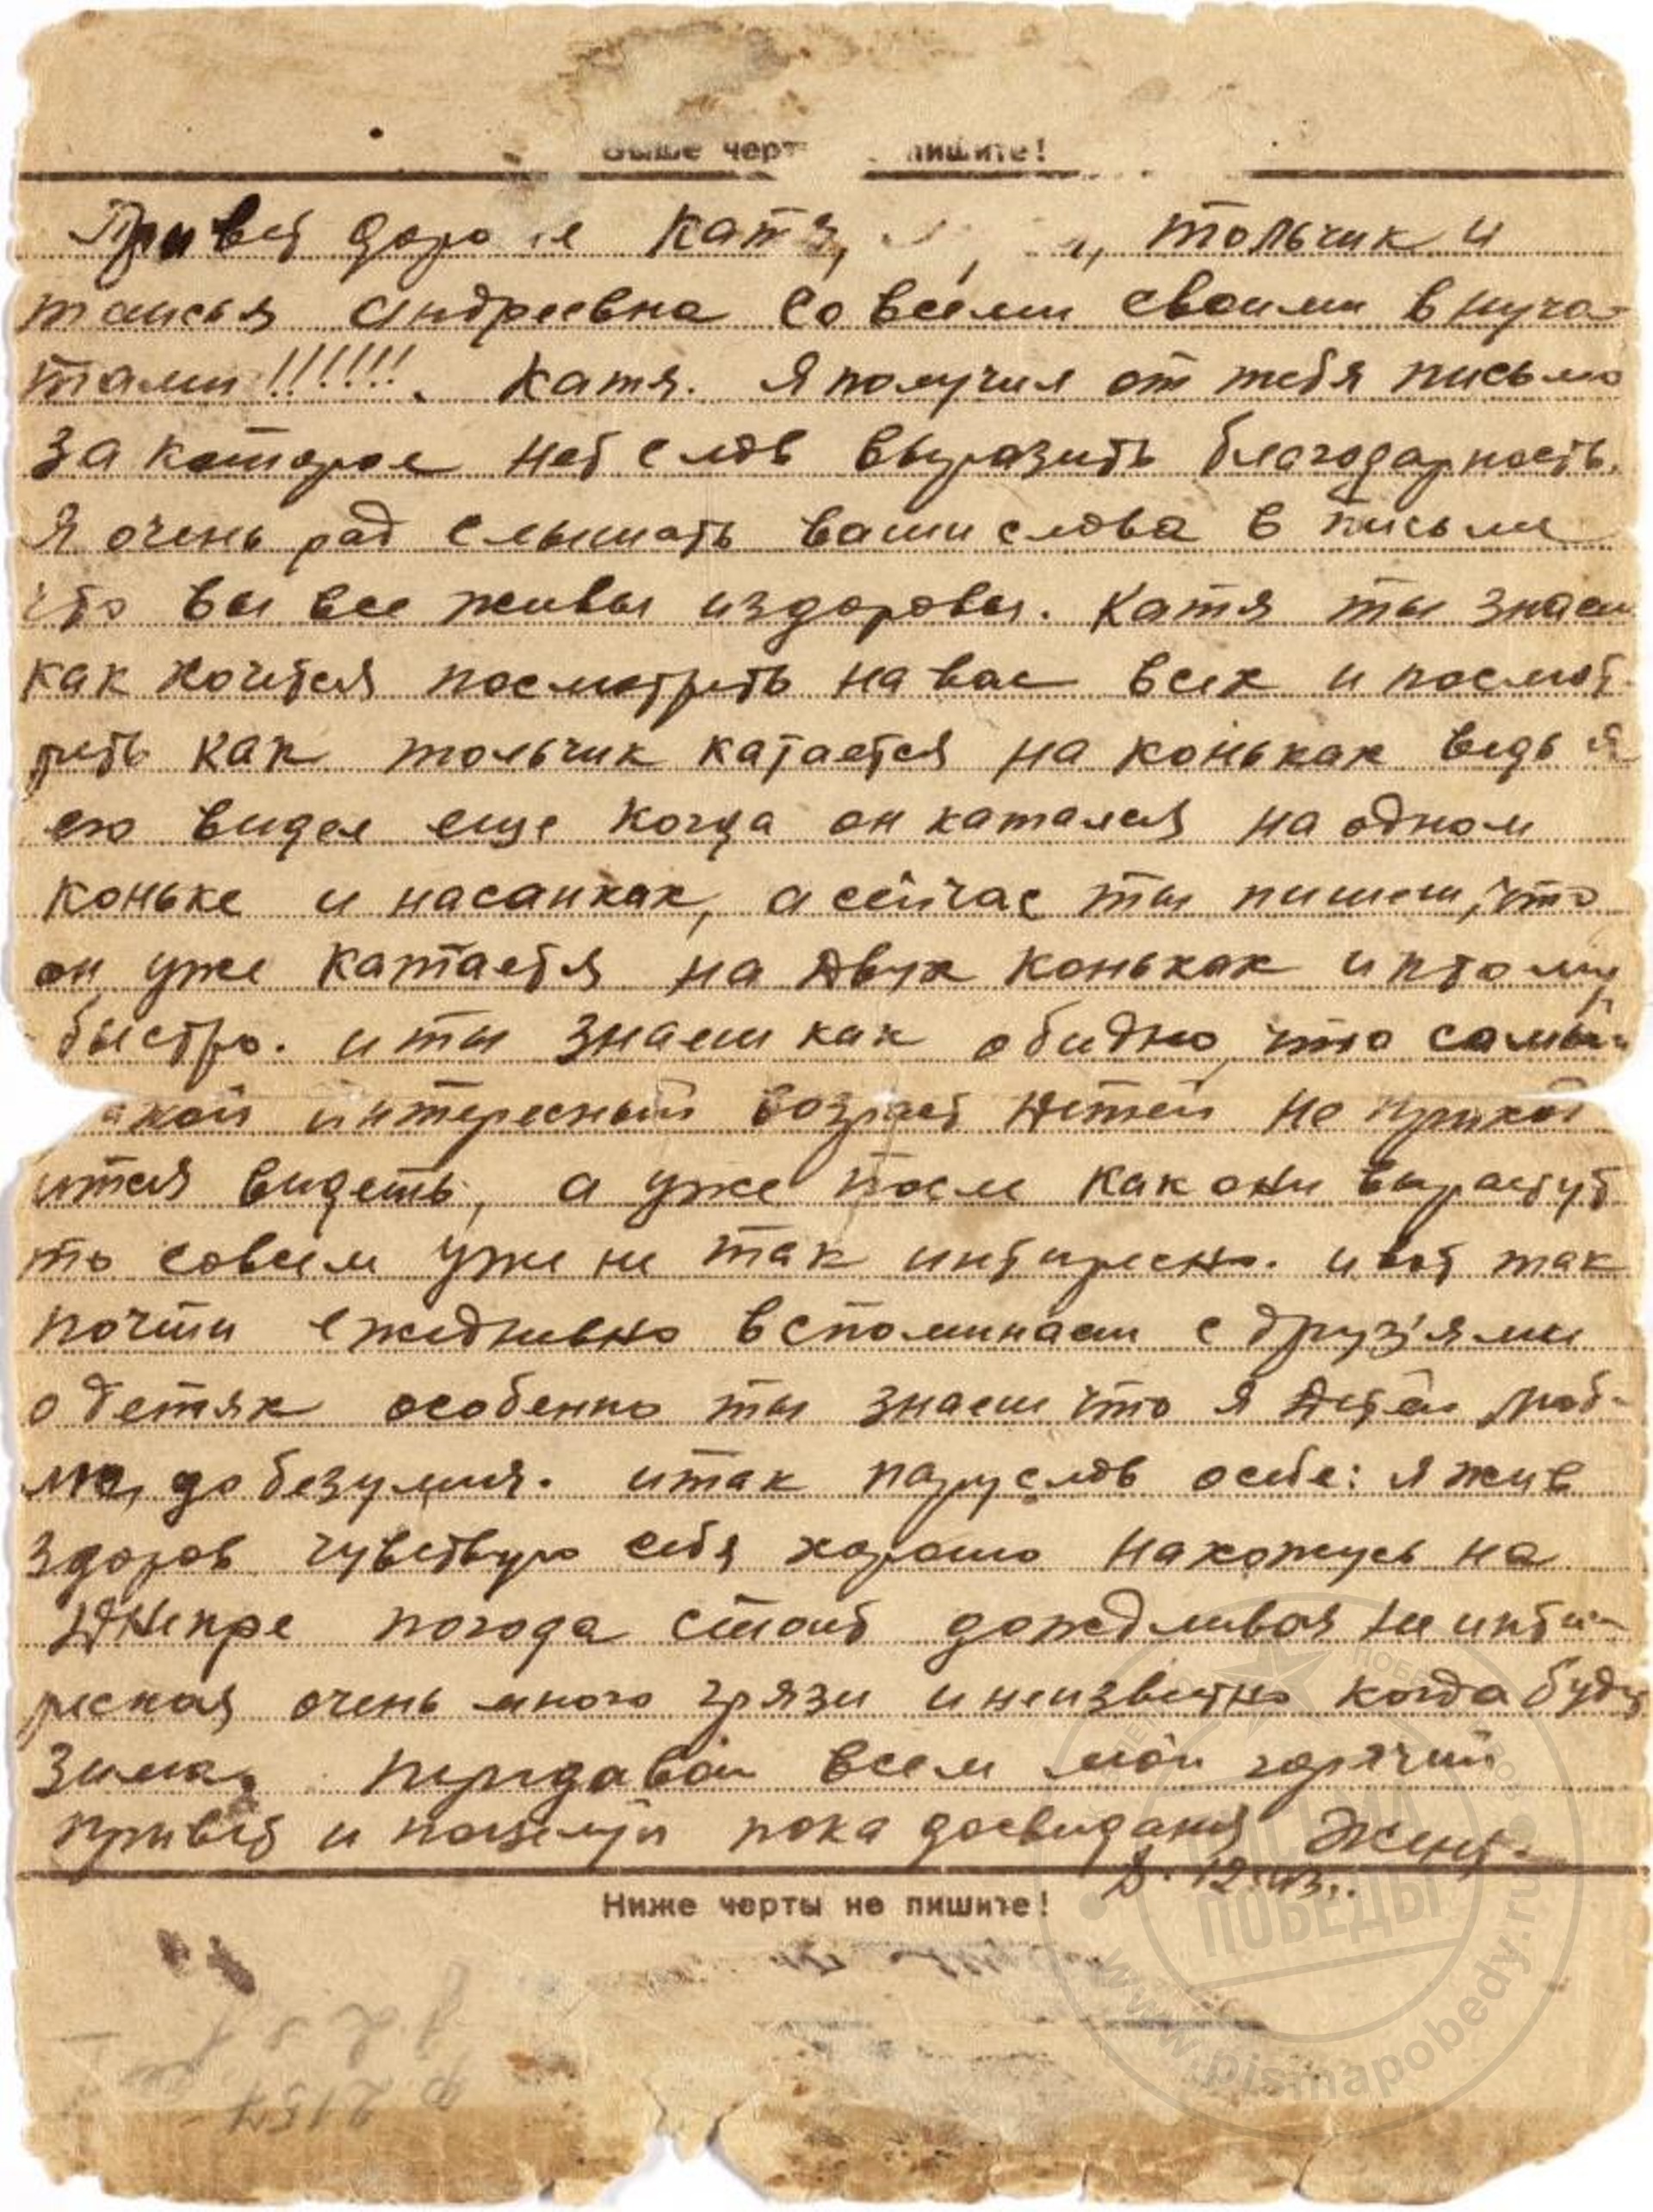 Выше черт пишите!
Привет доро е Катя, Тольчик и
таисья Андреевна со всеми своими внуча-
тами!!!!!!. Катя. Я получил от тебя письмо
за которое нет слов выразить благодарность.
Я очень рад слышать ваши слова в письме
что вы все живы издоровы. Катя ты знаеш
как хочится посмотреть на вас всех и посмот-
реть как тольчик катается на коньках ведь я
его видел еще когда он катался на одном
коньке и насанках, а сейчас ты пишеш, что
он уже катается на двух коньках и птому
быстро. и ты знаеш как обидно, что самый
акой интересный возраст детей не приход
ится видеть, а уже после как они вырастут
то совсем уже не так интиресно. и вот так
почти ежедневно вспоминаеш с друз'ями
о детях особенно ты знаеш что я детей люб-
лю, до безумия. итак пару слов осебе: я жив
здоров чувствую себя хорошо нахожусь на
Днепре погода стоит дождливая не инти-
ресная очень много грязи и неизвестно когда будит
зима, передавай всем мой горячий
привет и поцелуй пока досвидания Женя.
8.12.43г.
Ниже черты не пишите!
ф. 2157
ПИСЬМА
ПОБЕДЫ
www.pismapobedy.ru